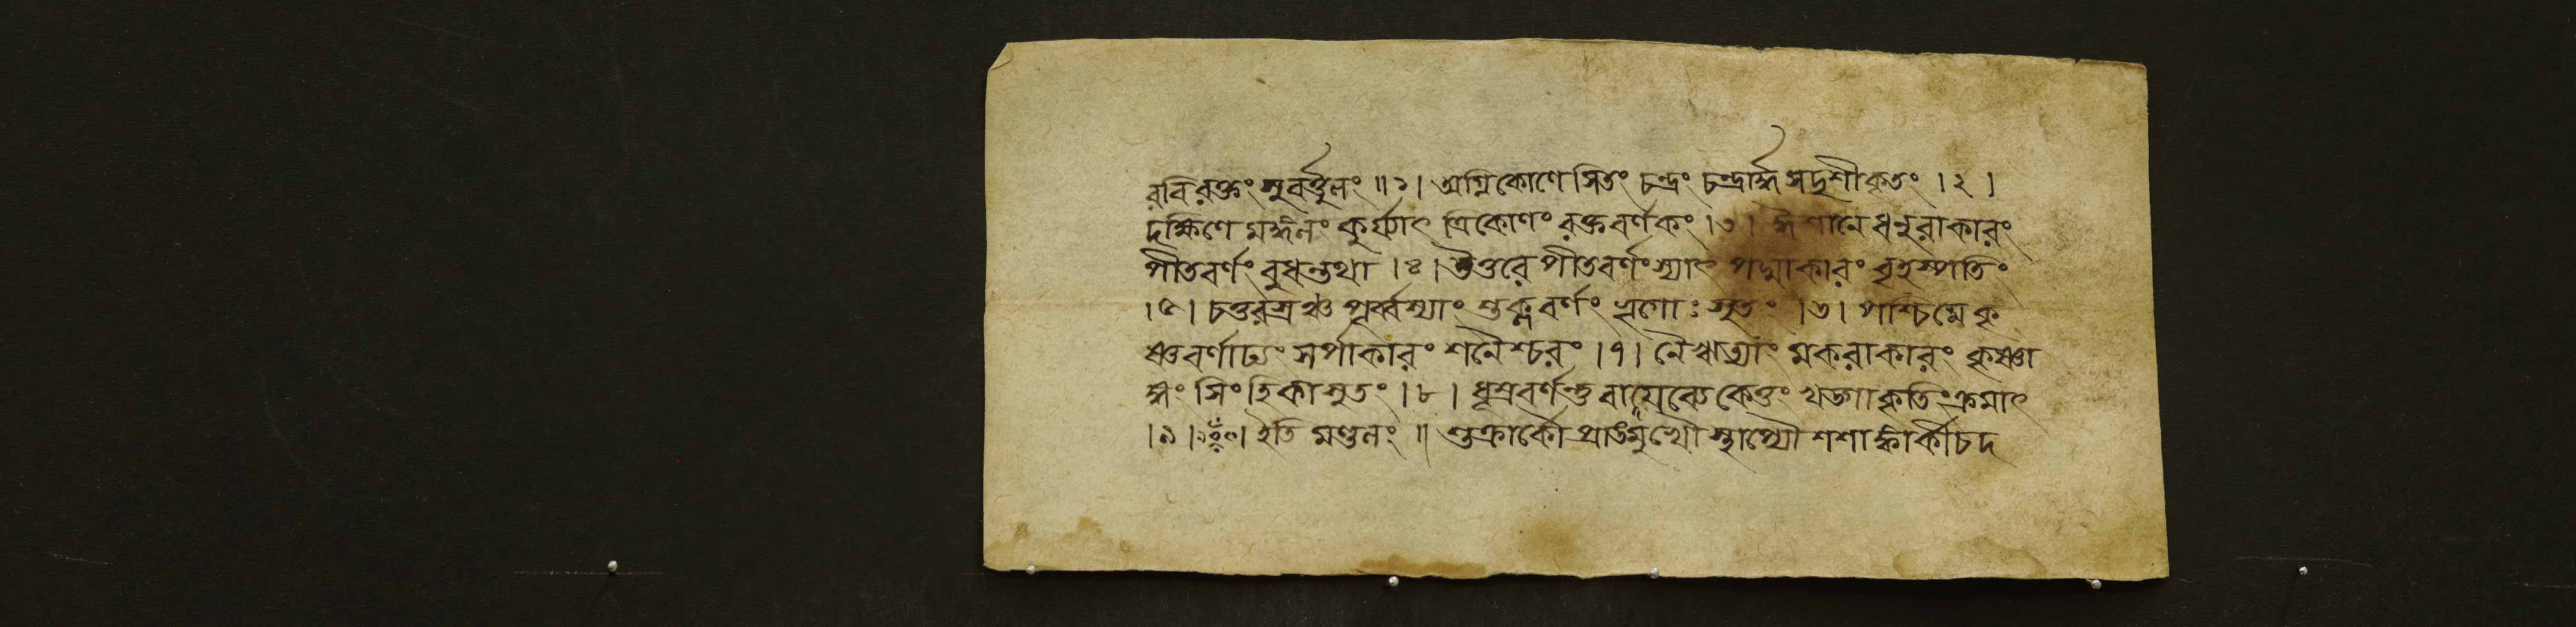 ৰবি ৰক্তং সুবর্ত্তুলং ॥ ১ । অগ্নিকোণে সিতং চন্দ্রং চন্দ্রার্দ্ধ সদৃশীকৃতং । ২ ।
দক্ষিণে মঙ্গলং কুর্য্যাৎ ত্রিকোণং ৰক্তবর্ণকং । ৩ । ঈশানে ধনুৰাকাৰং
পীতবর্ণং বুধন্তথা । ৪ । উত্তৰে পীতবর্ণং স্যাৎ পদ্মাকাৰং বৃহস্পতিং
। ৫ । চতুৰস্ৰঞ্চ পূর্ব্বস্যাং শুক্লবর্ণং ভৃগোঃ সুতং । ৬ । পশ্চিমে কৃ
ষ্ণবর্ণাঢ্যং সর্পাকাৰং শনৈশ্চৰং । ৭ । নৈঋত্যাং মকৰাকাৰং কৃষ্ণা
ঙ্গং সিংহিকাসুতং । ৮ । ধূম্ৰবর্ণন্তু বায়ব্যে কেতুং খড়্গাকৃতিং ক্ৰমাৎ
। ৯ । ইতি মণ্ডলং ॥ শুক্ৰার্কৌ প্ৰাঙমুখৌ স্থাপ্যৌ শশাঙ্কার্কী চ দ